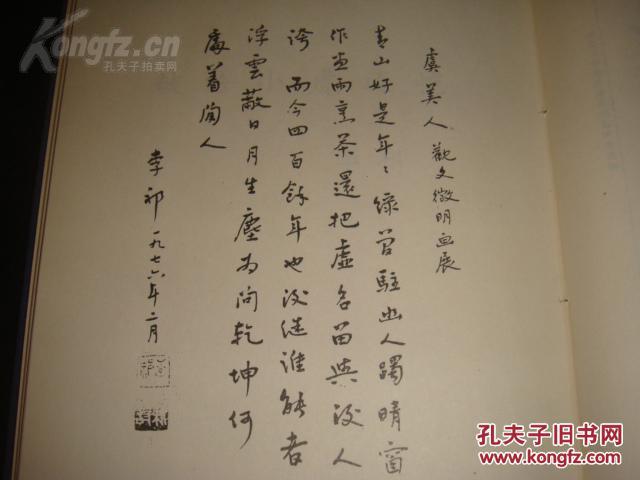 虞美人 觀文徵明画展
青山好是年々綠曾駐幽人躅晴窗
作画雨烹茶還把虛名留與後人
誇 而今四百餘年也後繼誰能者
浮雲蔽日月生塵為問乾坤何
處着閒人
李祁 一九七六年二月
Kongfz.com
孔夫子拍卖网
孔夫子旧书网
KONGFZ.COM